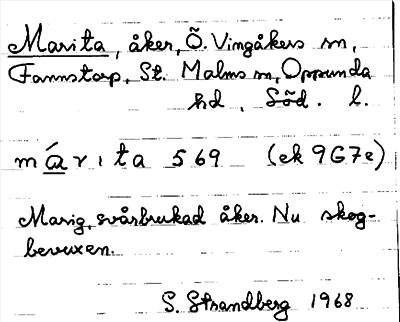 Marita, åker, Ö. Vingåkers sn,
Fannstorp, St. Malms sn, Oppunda
hd, Söd. l.
má̱rıta 569 (ek 9G7e)
Marig, svårbrukad åker. Nu skog-
bevuxen.
S. Strandberg 1968